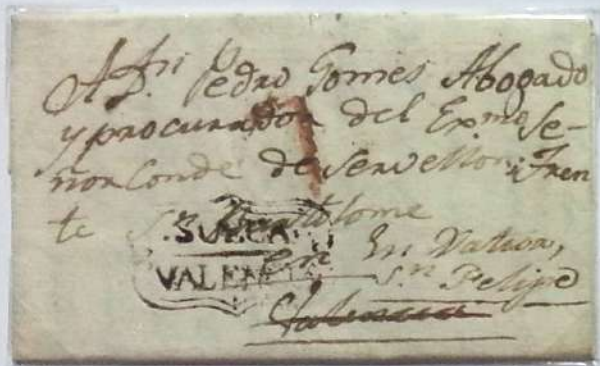 A Dn Pedro Gomes Abogado
y procurador del Exmo Se-
ñor Conde de Servellon: Fren
te Sn Bartolome
SUECA.
VALENCIA
en Sn Felipe
Valencia